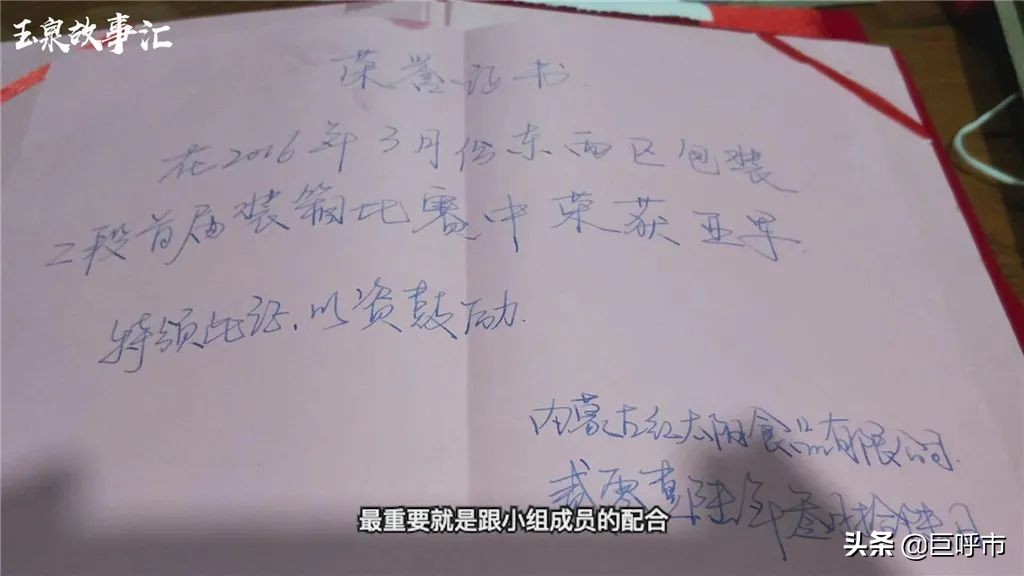 玉泉故事汇
荣誉证书
在2016年3月份东西区包装
二段首届装箱比赛中荣获亚军.
特颁此证,以资鼓励.
内蒙古红太阳食品有限公司.
贰零壹陆年叁月拾日
最重要就是跟小组成员的配合
头条 @巨呼市